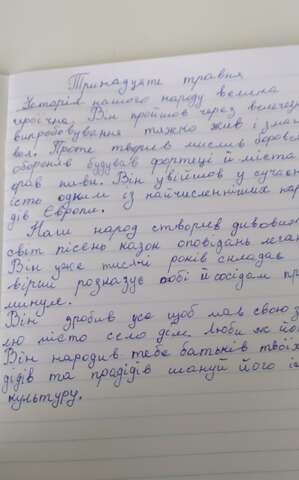 Тринадцяте травня
Історія нашого народу велика
героїчна. Він пройшов через величез
випробовування тяжко жив і зма
вся. Проте творив мислив боровс
обороняв будував фортеці й міста
орав ниви. Він увійшов у сучасн
ість одним із найчисленніших нар
дів Європи.
Наш народ створив дивовиж
світ пісень казок оповідань леген
Він уже тисячі років складає
вірші розказує собі й сусідам про
минуле.
Він зробив усе щоб мав свою з
лю місто село дім. Люби ж його
Він народив тебе батьків твоїх
дідів та прадідів шануй його і
культуру.